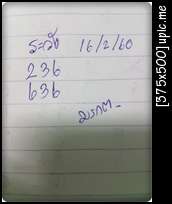 ระวัง 16/2/60
236
636
มรกต
[375x500] upic.me